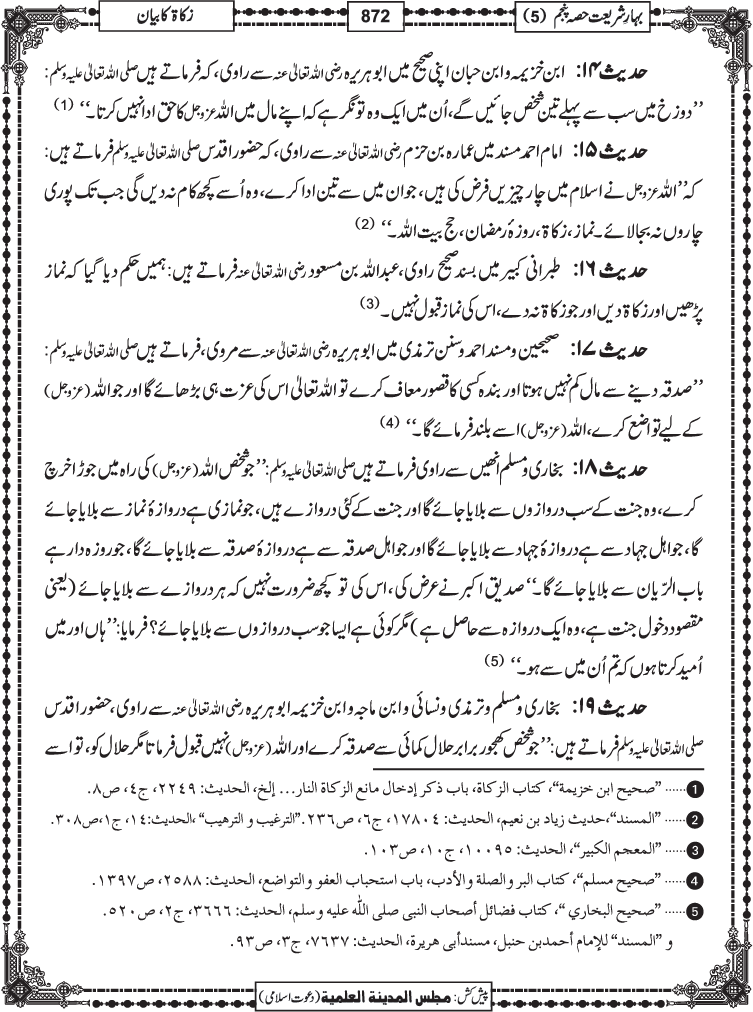 بہارِ شریعت حصہ پنجم (5)
872
زکاۃ کا بیان
حدیث ۱۴: ابن خزیمہ و ابن حبان اپنی صحیح میں ابوہریرہ رضی اللہ تعالیٰ عنہ سے راوی، کہ فرماتے ہیں صلی اللہ تعالیٰ علیہ وسلم:
’’دوزخ میں سب سے پہلے تین شخص جائیں گے، اُن میں ایک وہ تونگر ہے کہ اپنے مال میں اللہ عزوجل کا حق ادا نہیں کرتا۔‘‘ (1)
حدیث ۱۵: امام احمد مسند میں عمارہ بن حزم رضی اللہ تعالیٰ عنہ سے راوی، کہ حضور اقدس صلی اللہ تعالیٰ علیہ وسلم فرماتے ہیں:
کہ ’’اللہ عزوجل نے اسلام میں چار چیزیں فرض کی ہیں، جو ان میں سے تین ادا کرے، وہ اُسے کچھ کام نہ دیں گی جب تک پوری
چاروں نہ بجا لائے۔ نماز، زکاۃ، روزۂ رمضان، حج بیت اللہ۔‘‘ (2)
حدیث ۱۶: طبرانی کبیر میں بسند صحیح راوی، عبداللہ بن مسعود رضی اللہ تعالیٰ عنہ فرماتے ہیں: ہمیں حکم دیا گیا کہ نماز
پڑھیں اور زکاۃ دیں اور جو زکاۃ نہ دے، اس کی نماز قبول نہیں۔ (3)
حدیث ۱۷: صحیحین و مسند احمد و سنن ترمذی میں ابوہریرہ رضی اللہ تعالیٰ عنہ سے مروی، فرماتے ہیں صلی اللہ تعالیٰ علیہ وسلم:
’’صدقہ دینے سے مال کم نہیں ہوتا اور بندہ کسی کا قصور معاف کرے تو اللہ تعالیٰ اس کی عزت ہی بڑھائے گا اور جو اللہ (عزوجل)
کے لیے تواضع کرے، اللہ (عزوجل) اسے بلند فرمائے گا۔‘‘ (4)
حدیث ۱۸: بخاری و مسلم انھیں سے راوی فرماتے ہیں صلی اللہ تعالیٰ علیہ وسلم: ’’جو شخص اللہ (عزوجل) کی راہ میں جوڑا خرچ
کرے، وہ جنت کے سب دروازوں سے بلایا جائے گا اور جنت کے کئی دروازے ہیں، جو نمازی ہے دروازۂ نماز سے بلایا جائے
گا، جو اہل جہاد سے ہے دروازۂ جہاد سے بلایا جائے گا اور جو اہل صدقہ سے ہے دروازۂ صدقہ سے بلایا جائے گا، جو روزہ دار ہے
باب الرّیان سے بلایا جائے گا۔‘‘ صدیق اکبر نے عرض کی، اس کی تو کچھ ضرورت نہیں کہ ہر دروازے سے بلایا جائے (یعنی
مقصود دخول جنت ہے، وہ ایک دروازہ سے حاصل ہے) مگر کوئی ہے ایسا جو سب دروازوں سے بلایا جائے؟ فرمایا: ’’ہاں اور میں
اُمید کرتا ہوں کہ تم اُن میں سے ہو۔‘‘ (5)
حدیث ۱۹: بخاری و مسلم و ترمذی و نسائی و ابن ماجہ و ابن خزیمہ ابوہریرہ رضی اللہ تعالیٰ عنہ سے راوی، حضور اقدس
صلی اللہ تعالیٰ علیہ وسلم فرماتے ہیں: ’’جو شخص کھجور برابر حلال کمائی سے صدقہ کرے اور اللہ (عزوجل) نہیں قبول فرماتا مگر حلال کو، تو اسے
1 ...... ’’صحيح ابن خزيمة‘‘، كتاب الزكاة، باب ذكر إدخال مانع الزكاة النار... إلخ، الحديث: ٢٢٤٩، ج٤، ص٨.
2 ...... ’’المسند‘‘، حديث زياد بن نعيم، الحديث: ١٧٨٠٤، ج٦، ص٢٣٦. ’’الترغيب و الترهيب‘‘، الحديث: ١٤، ج١، ص٣٠٨.
3 ...... ’’المعجم الكبير‘‘، الحديث: ١٠٠٩٥، ج١٠، ص١٠٣.
4 ...... ’’صحيح مسلم‘‘، كتاب البر والصلة والأدب، باب استحباب العفو والتواضع، الحديث: ٢٥٨٨، ص١٣٩٧.
5 ...... ’’صحيح البخاري‘‘، كتاب فضائل أصحاب النبى صلى الله عليه وسلم، الحديث: ٣٦٦٦، ج٢، ص٥٢٠.
و ’’المسند‘‘ للإمام أحمد بن حنبل، مسند أبى هريرة، الحديث: ٧٦٣٧، ج٣، ص٩٣.
پیش کش: مجلس المدینۃ العلمیۃ (دعوتِ اسلامی)